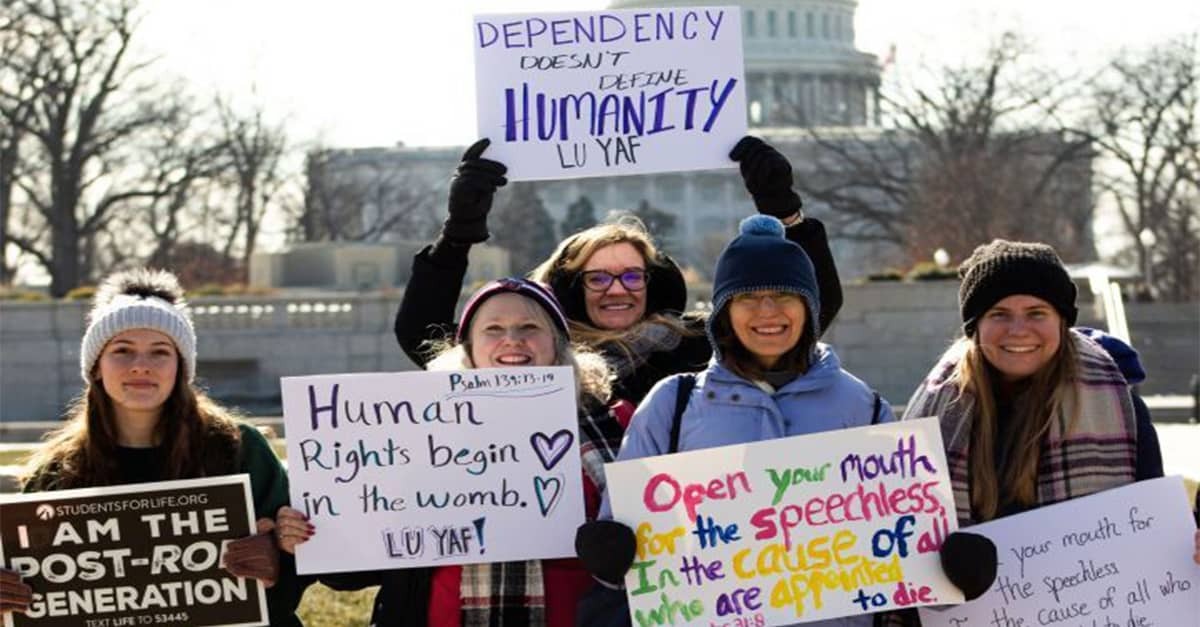 DEPENDENCY
DOESN'T
DEFINE
HUMANITY
LU YAF
Psalm 139:13-19
Human
Rights begin
in the womb.
LU YAF!
STUDENTSFORLIFE.ORG
I AM THE
POST-RO
GENERATION
TEXT LIFE TO 53445
Open your mouth
for the speechless,
In the cause of all
who are appointed
to die.
31:8
your mouth for
the speechless
the cause of all who
to die.